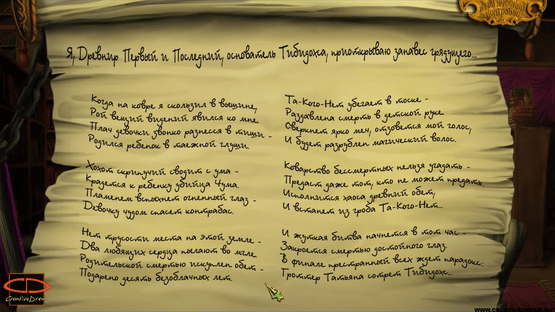 Я, Древнир Первый и Последний, основатель Тибидохса, приоткрываю занавес грядущего...
Когда на ковре я скользил в вышине,
Рой вещих видений явился ко мне.
Плач девочки звонко разнесся в тиши -
Родился ребенок в таежной глуши.
Хохот скрипучий сводит с ума -
Крадется к ребенку убийца Чума.
Пламенем вспыхнет огненный глаз -
Девочку чудом спасет контрабас.
Нет трусости места на этой земле -
Два любящих сердца пылают во мгле.
Родительской смертью искуплен обет -
Подарено десять безоблачных лет.
Та-Кого-Нет убегает в тоске -
Раздавлена смерть в детской руке.
Сверкнет ярко меч, отзовется мой голос,
И будет разрублен магический волос.
Коварство бессмертных нельзя угадать -
Предаст даже тот, кто не может предать.
Исполнится хаоса древний обет,
И встанет из гроба Та-Кого-Нет.
И жуткая битва начнется в тот час -
Закроется смертью достойного глаз.
В финале престранный всех ждет парадокс:
Гроттер Татьяна сотрет Тибидохс...
CreativeDream